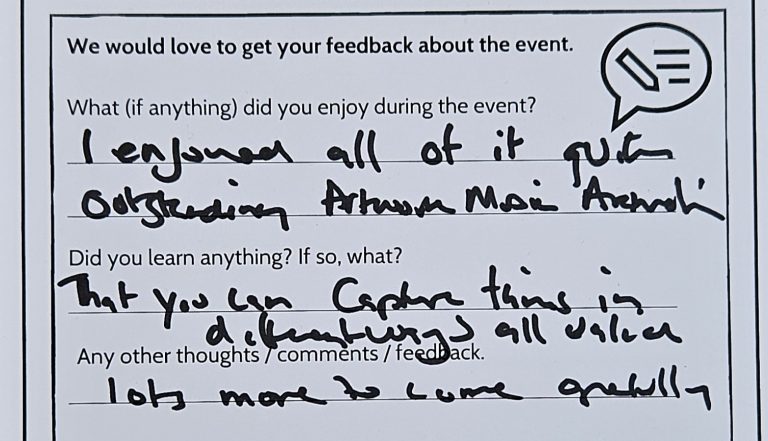 We would love to get your feedback about the event.
What (if anything) did you enjoy during the event?
I enjoyed all of it quite
Outstanding Artwork Music
Did you learn anything? If so, what?
That you can Capture things in
different ways all valid
Any other thoughts / comments / feedback.
lots more to come